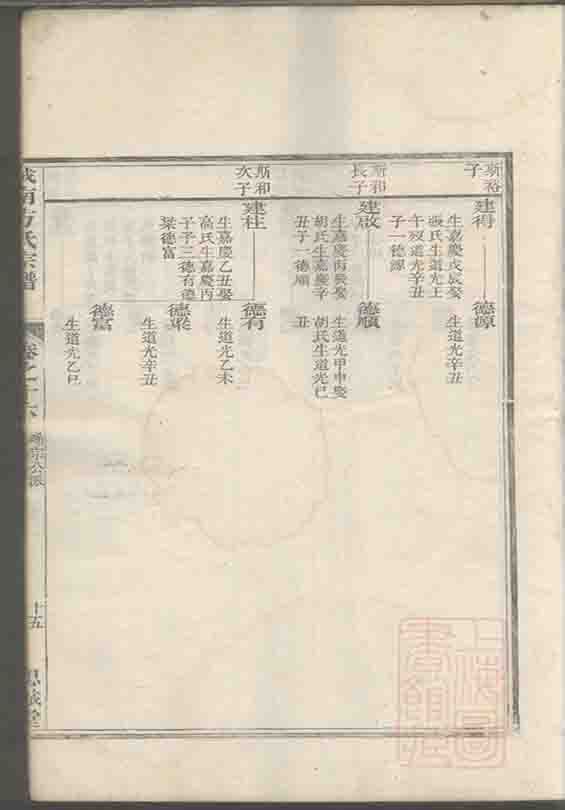 斯裕
子
建得
德源
生嘉慶戊辰娶
張氏生道光壬
午歿道光辛丑
子一德源
生道光辛丑
斯和
長子
建啟
德順
生嘉慶丙辰娶
胡氏生嘉慶辛
丑子一德順
生道光甲申娶
胡氏生道光己
丑
斯和
次子
建柱
德有
生嘉慶乙丑娶
高氏生嘉慶丙
子子三德有德
聚德富
生道光乙未
德聚
生道光辛丑
德富
生道光乙巳
城南方氏宗譜
卷之十六
宗公派
十五
上海圖
書館藏